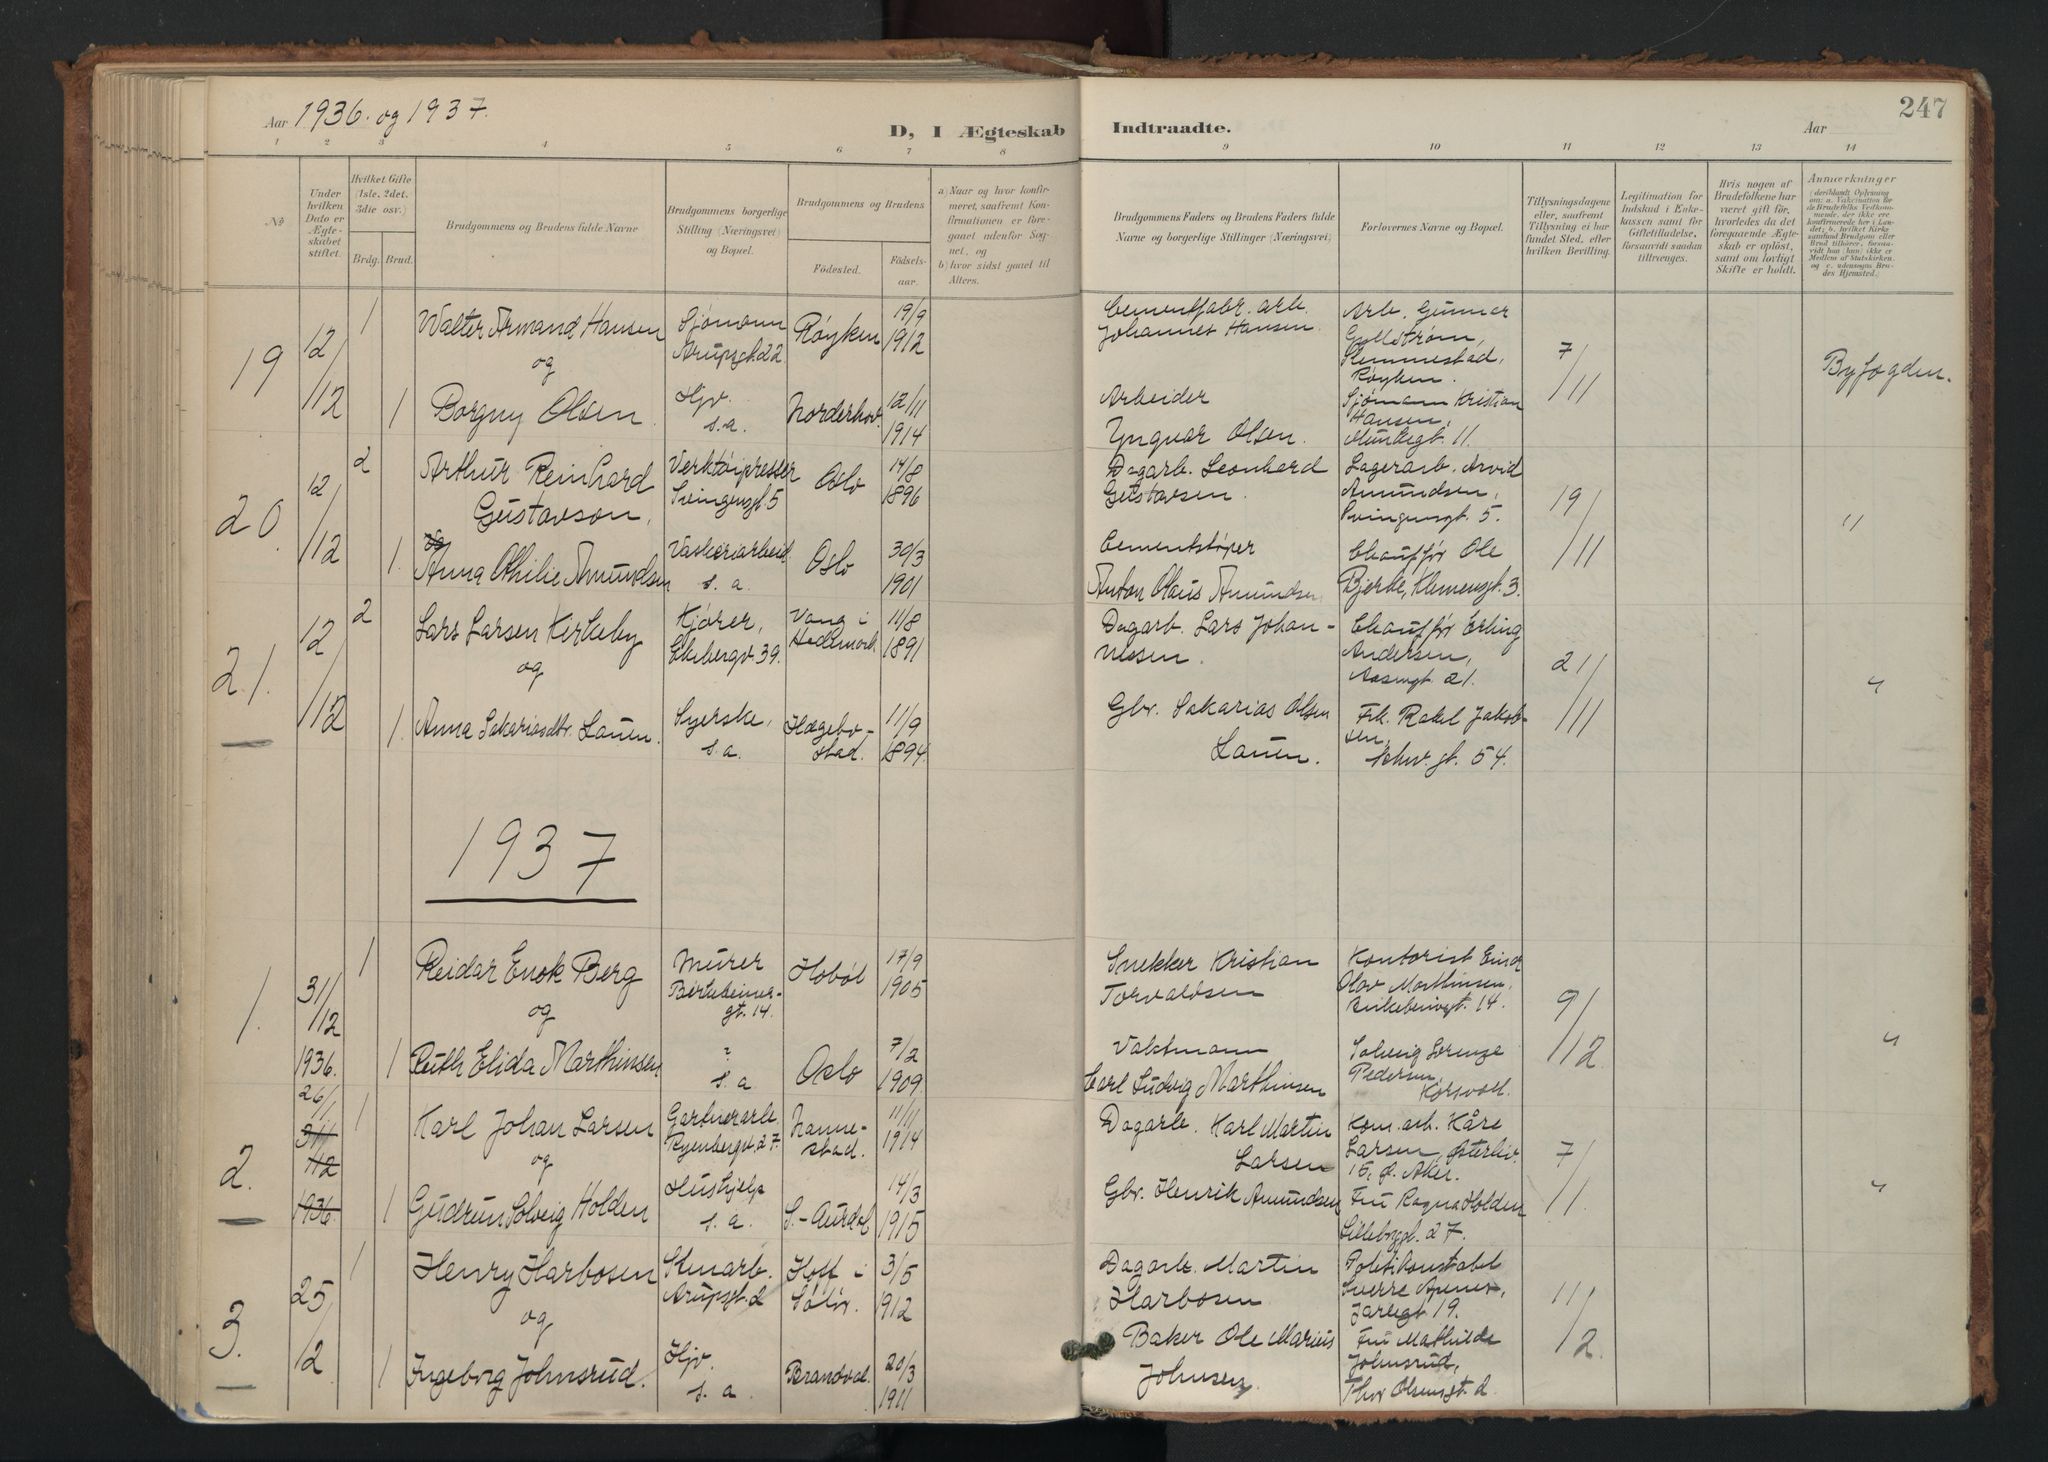 Aar 1936. og 1937.
D, I Ægteskab
Indtraadte.
Aar
247
1 2 3 4 5 6 7 8 9 10 11 12 13 14
No
Under hvilken Dato er Ægteskabet stiftet.
Hvilket Gifte (1ste, 2det, 3die osv.)
Brdg. Brud.
Brudgommens og Brudens fulde Navne
Brudgommens borgerlige Stilling (Næringsvei) og Bopæl.
Brudgommens og Brudens
Födested.
Födsels-aar.
a) Naar og hvor konfirmeret, saafremt Konfirmationen er foregaaet udenfor Sognet, og
b) hvor sidst gaaet til Alters.
Brudgommens Faders og Brudens Faders fulde Navne og borgerlige Stillinger (Næringsvei)
Forlovernes Navne og Bopæl.
Tillysningsdagene eller, saafremt Tillysning ei har fundet Sted, efter hvilken Bevilling.
Legitimation for Indskud i Enkekassen samt for Giftetilladelse, forsaavidt saadan tiltrænges.
Hvis nogen af Brudefolkene har været gift før, hvorledes da det foregaaende Ægteskab er oplöst, samt om lovligt Skifte er holdt.
Anmærkninger
19
12/12
1
Walter Armand Hansen
Sjömann
Arupsgt. 22
Røyken
19/9
1912
Cementfabr. arb.
Johannes Hansen.
Arb. Gunnar
Gullstrøm,
Slemmestad,
Røyken.
7/11
Byfogden.
og
1
Borgny Olsen
Hjv.
s.a.
Norderhov.
12/11
1914
Arbeider
Yngvar Olsen.
Sjömann Kristian
Hansen,
Munkegt. 11.
20.
12/12
2
Arthur Reinhard
Gustavson,
Verktöipresser
Svingensgt. 5
Oslo
14/8
1896
Dagarb. Leonhard
Gustavsen.
Lagerarb. Arvid
Amundsen,
Svingensgt. 5.
19/11
"
1.
Anna Othilie Amundsen
Vaskeriarbeid.
s. a.
Oslo
30/3
1901
Cementstöper
Anton Olaus Amundsen
Chauffør Ole
Bjerke, Klemensgt. 3.
21.
12/12
2
Lars Larsen Kirkeby
og
Kjører,
Ekebergv. 39.
Vang i
Hedemark
11/8
1891
Dagarb. Lars Johan-
nessen.
Chauffør Erling
Andersen,
Aasengt. 21.
21/11
"
1.
Anna Sakariasdtr. Lauen.
Syerske,
s. a.
Hægebo-
stad.
11/9
1894.
Gbr. Sakarias Olsen
Lauen.
Frk. Rakel Jakob-
sen,
Schw. gt. 54.
1937
1.
31/12
1936.
1
Reidar Enok Berg
og
Murer
Birkebeiner-
gt. 14.
Hobøl
17/9
1905
Snekker Kristian
Torvaldsen
Kontorist Einar
Olav Marthinsen,
Birkebeinergt. 14.
9/12
"
1
Ruth Elida Marthinsen
?
s. a.
Oslo
7/2
1909
Vaktmann
Carl Ludvig Marthinsen
Solveig Lorenze
Pedersen,
Korsvoll.
2.
26/1
31/12
1936.
1
Karl Johan Larsen
og
Gartnerarb.
Ryenbergv. 27.
Nanne-
stad.
11/11
1914
Dagarb. Karl Martin
Larsen
Kom. arb. Kåre
Larsen, Østerliv.
15, Ø. Aker.
7/1.
"
1
Gudrun Solveig Holden
Hushjelp
s. a.
S.-Aurdal
14/3
1915
Gbr. Henrik Amundsen
Fru Ragna Holden
27.
3.
25/2
1
Henry Harbosen
og
Stenarb.
Arupsgt. 2
Hoff i
Solør.
3/5
1912
Dagarb. Martin
Harbosen
Politikonstabel
Sverre
Jarlegt. 19.
11/2.
1
Ingeborg Johnsrud.
Hjv.
s. a.
Brandval.
20/3
1911
Baker Ole Marius
Johnsen
Fru Mathilde
Johnsrud,
Thor Olsensgt. 2